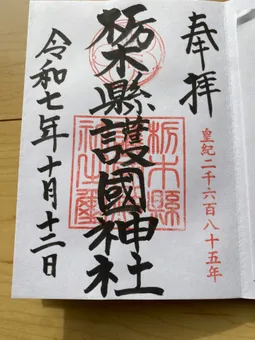 奉拝
皇紀二千六百八十五年
栃木縣護國神社
栃木縣護國神社之璽
令和七年十月十二日